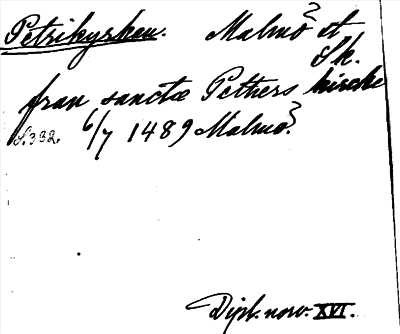 Petrikyrkan. Malmö? st
Sk.
fran sanctæ Pethers kirche
S. 332 6/7 1489 Malmö?
Dipl. norv. XVI.